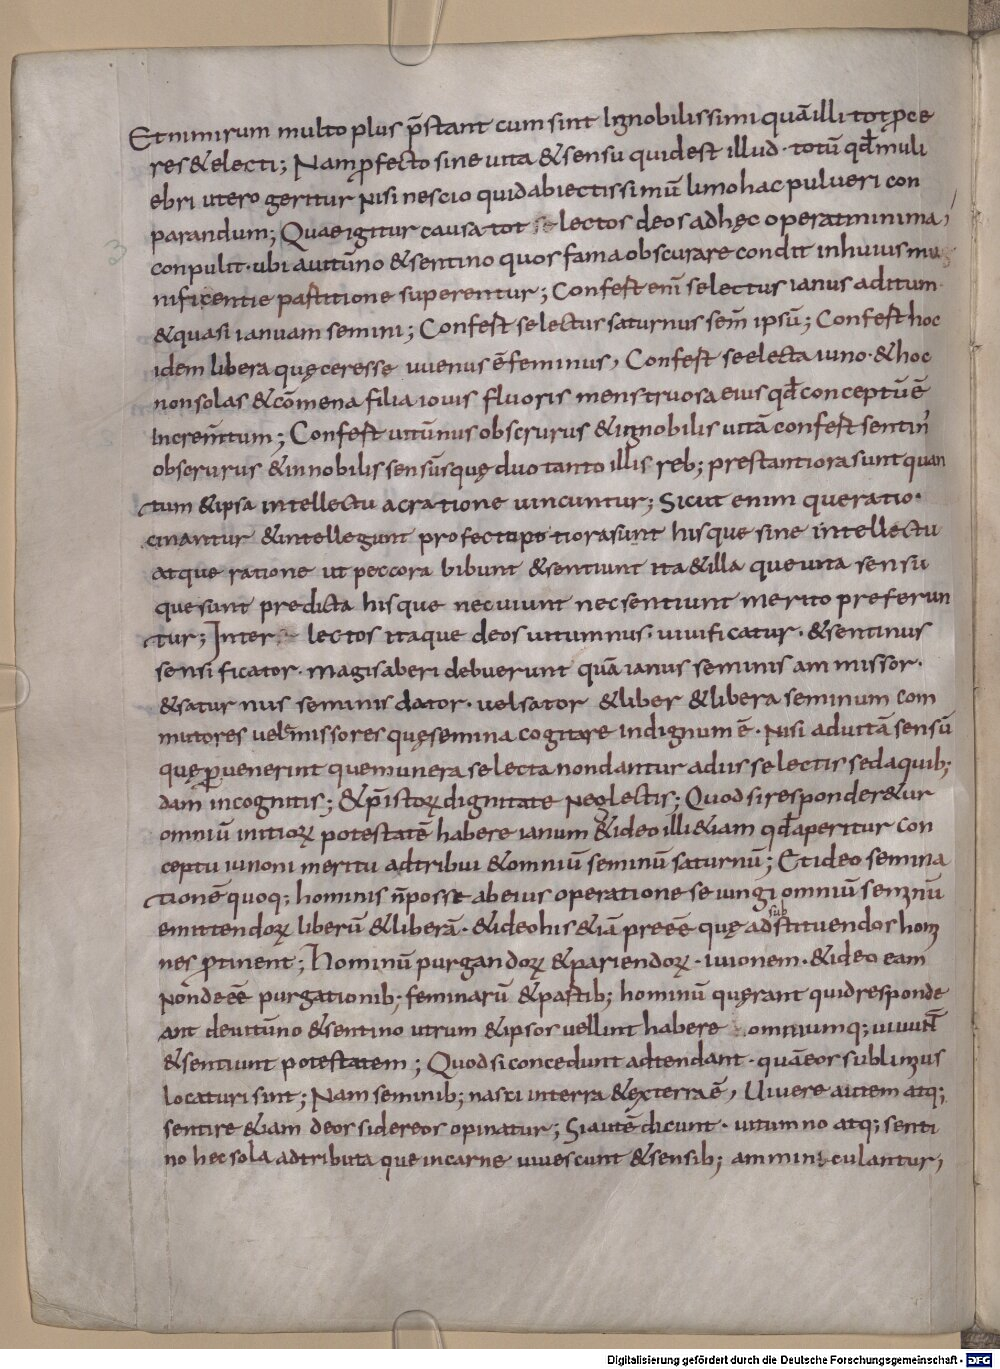 Et nimirum multo plus p̄stant cum sint Ignobilissimi quā illi tot ꝓce
res & electi; Nam ꝓfecto sine uita & sensu quid est illud · totū qđ muli
ebri utero geritur Nisi nescio quid abiectissimū limo hac pulueri con
parandum; Quae igitur causa tot se lectos deos ad hęc opera minima,
conpulit · ubi auitūno & sentino quos fama obscurare condit in huius mu
nificentie partitione superentur; Confert enī selectus ianus aditum
& quasi ianuam semini; Confert selectus saturnus sem̄ ipsū; Confert hoc
idem libera quę ceresse uuenus ē feminus, Confert se electa iuno · & hoc
non solas & cōmena filia iouis fluoris menstruosa eius qđ conceptū ē
Increm̄tum; Confert uitūnus obscrurus & ignobilis uitā confert sentin̄
obscrurus & innobilis sensūsquę duo tanto illis reb; prestantiora sunt quan
tum & ipsa intellectu ac ratione uincuntur; Sicut enim que ratio ·
cinantur & intellegunt profecto potiora sunt his que sine intellectu
atque ratione ut peccora bibunt & sentiunt ita & illa que uita sensu
que sunt predicta his que nec uiuunt nec sentiunt merito preferun
tur; Inter se lectos itaque deos uitumnus · uiuificatur · & sentinus
sensi ficator · magis aberi debuerunt quā ianus seminis ammissor ·
& satur nus seminis dator · uel sator & liber & libera seminum com
mutores uel emissores quę semina cogitare indignum ē · Nisi ad uitā sensū
quę ꝑuenerint que munera selecta non dantur a diis selectis sed a quib;
dam incognitis; & p̄ istoꝝ dignitate Neglectis; Quod si responder&ur
omniū initioꝝ potestatē habere ianum & ideo illi &iam qđ aperitur con
ceptu iunoni meritu adtribui & omniū seminū saturnū; Et ideo semina
tionē quoq; hominis n̄ posse ab eius operatione seiungi omniū seminū
emittendoꝝ liberū & liberā · & ideo his &iā preēē quę ad substituendos homi
nes ꝑtinent; Hominū purgandoꝝ & pariendoꝝ · iuionem · & ideo eam
Nōn deēē purgationib; feminarū & partib; hominū quęrant quid responde
ant de uitūno & sentino utrum & ipsor uellint habere omniumq; uiuunt̄
& sentiunt potestatem; Quod si concedunt adtendant · quā eor sublimius
locaturi sint; Nam seminib; nasci in terra & ex terra ē, Uiuere autem atq;
sentire &iam deor sidereor opinatur; Si autē dicunt · uitumno atq; senti
no hec sola adtributa que in carne uiuescunt & sensib; amminiculantur,
Digitalisierung gefördert durch die Deutsche Forschungsgemeinschaft - DFG